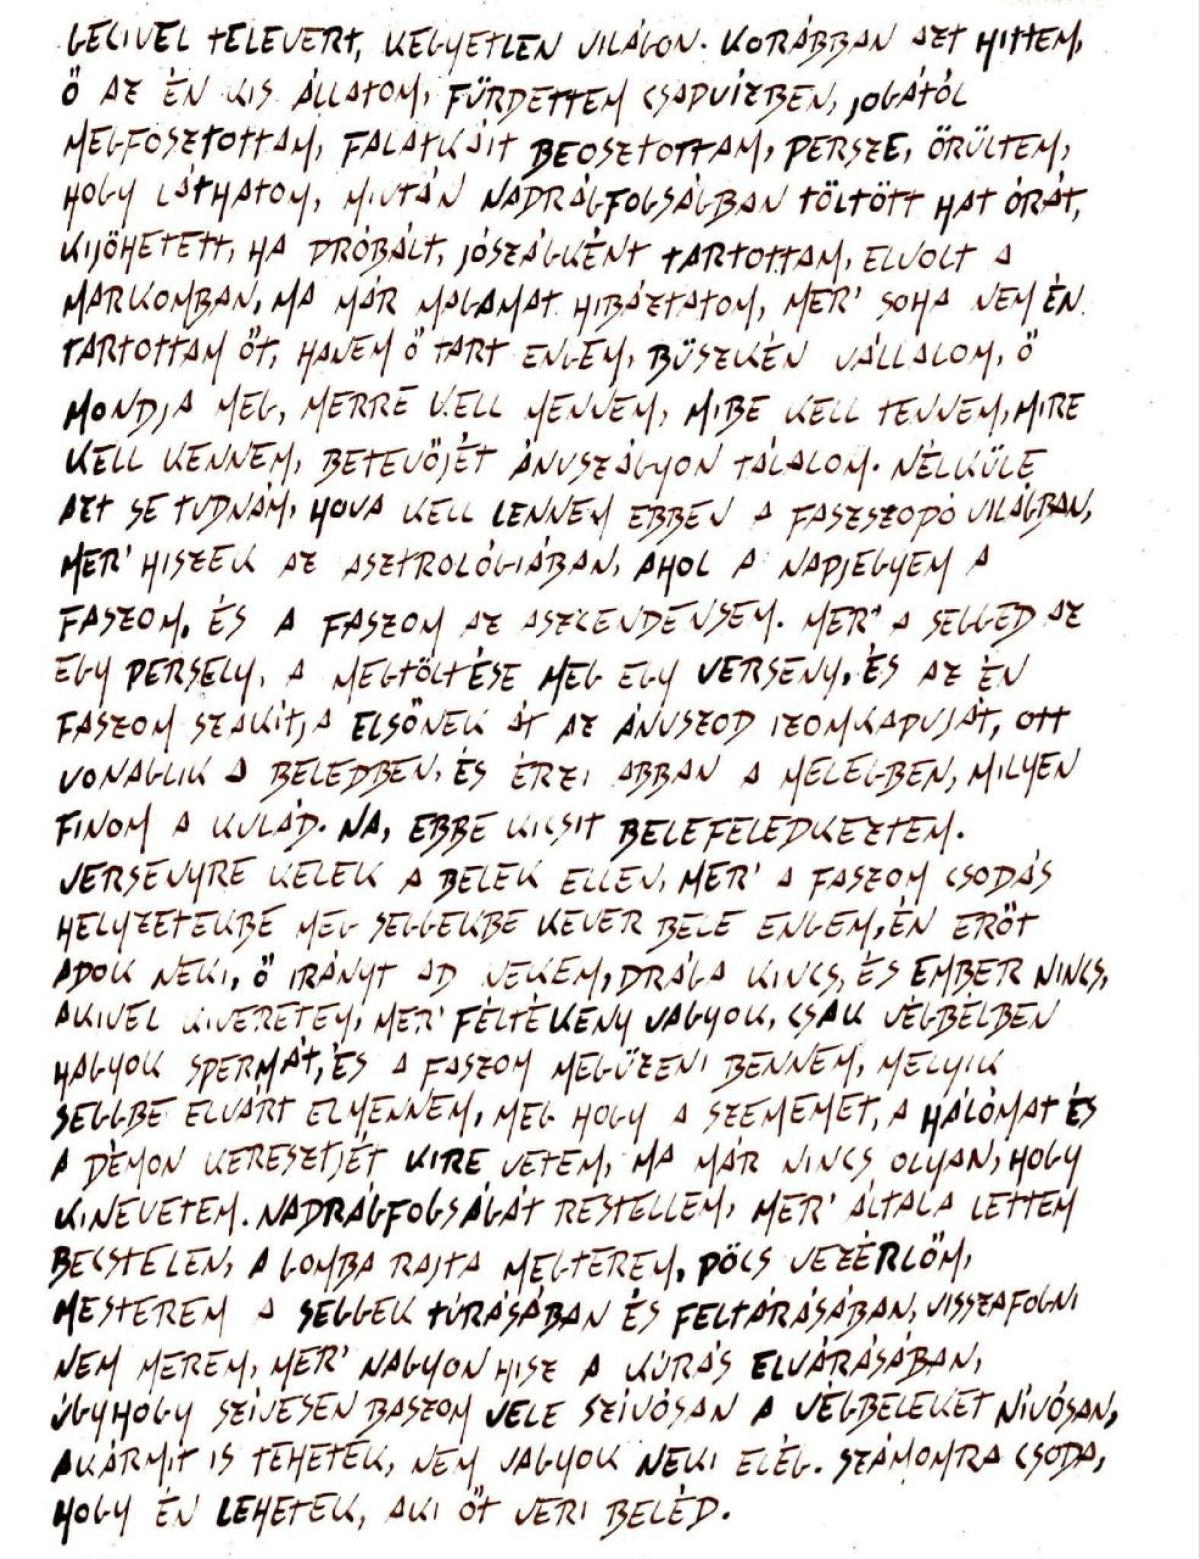 GECIVEL TELEVERT, KEGYETLEN VILÁGON. KORÁBBAN AZT HITTEM,
Ő AZ ÉN KIS ÁLLATOM, FÜRDETTEM CSAPVÍZBEN, JOGÁTÓL
MEGFOSZTOTTAM, FALATKÁIT BEOSZTOTTAM, PERSZE, ÖRÜLTEM,
HOGY LÁTHATOM, MIUTÁN NADRÁGFOGSÁGBAN TÖLTÖTT HAT ÓRÁT,
KIJÖHETETT, HA PRÓBÁLT, JÓSZÁGKÉNT TARTOTTAM, ELVOLT A
MARKOMBAN, MA MÁR MAGAMAT HIBÁZTATOM, MER' SOHA NEM ÉN
TARTOTTAM ŐT, HANEM Ő TART ENGEM, BÜSZKÉN VÁLLALOM, Ő
MONDJA MEG, MERRE KELL MENNEM, MIBE KELL TENNEM, MIRE
KELL KENNEM, BETEVŐJÉT ÁNUSZÁGYON TÁLALOM. NÉLKÜLE
AZT SE TUDNÁM, HOVA KELL LENNEM EBBEN A FASZSZOPÓ VILÁGBAN,
MER' HISZEK AZ ASZTROLÓGIÁBAN, AHOL A NAPJEGYEM A
FASZOM, ÉS A FASZOM AZ ASZCENDENSEM. MER' A SEGGED AZ
EGY PERSELY, A MEGTÖLTÉSE MEG EGY VERSENY, ÉS AZ ÉN
FASZOM SZAKÍTJA ELSŐNEK ÁT AZ ÁNUSZOD IZOMKAPUJÁT, OTT
VONAGLIK A BELEDBEN, ÉS ÉRZI ABBAN A MELEGBEN, MILYEN
FINOM A KULÁD. NA, EBBE KICSIT BELEFELEDKEZTEM.
VERSENYRE KELEK A BELEK ELLEN, MER' A FASZOM CSODÁS
HELYZETEKBE MEG SEGGEKBE KEVER BELE ENGEM, ÉN ERŐT
ADOK NEKI, Ő IRÁNYT AD NEKEM, DRÁGA KINCS, ÉS EMBER NINCS,
AKIVEL KIVERETEM, MER' FÉLTÉKENY VAGYOK, CSAK VÉGBÉLBEN
HAGYOK SPERMÁT, ÉS A FASZOM MEGÜZENI BENNEM, MELYIK
SEGGBE ELVÁRT ELMENNEM, MEG HOGY A SZEMEMET, A HÁLÓMAT ÉS
A DÉMON KERESZTJÉT KIRE VETEM, MA MÁR NINCS OLYAN, HOGY
KINEVETEM. NADRÁGFOGSÁGÁT RESTELLEM, MER' ÁLTALA LETTEM
BECSTELEN, A GOMBA RAJTA MEGTEREM, PÖCS VEZÉRLŐM,
MESTEREM A SEGGEK TÚRÁSÁBAN ÉS FELTÁRÁSÁBAN, VISSZAFOGNI
NEM MEREM, MER' NAGYON HISZ A KÚRÁS ELVÁRÁSÁBAN,
ÚGYHOGY SZÍVESEN BASZOM VELE SZÍVÓSAN A VÉGBELEKET NÍVÓSAN,
AKÁRMIT IS TEHETEK, NEM VAGYOK NEKI ELÉG. SZÁMOMRA CSODA,
HOGY ÉN LEHETEK, AKI ŐT VERI BELÉD.